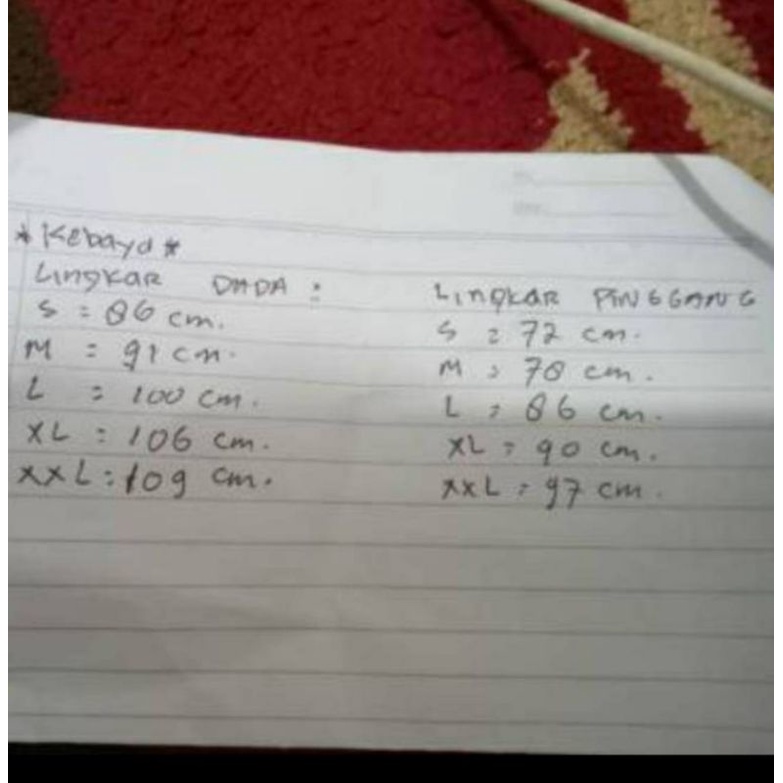 * Kebaya *
Lingkar DADA :
S = 86 cm.
M = 91 cm.
L = 100 cm.
XL = 106 cm.
XXL = 109 cm.
Lingkar PINGGANG
S = 72 cm.
M = 78 cm.
L = 86 cm.
XL = 90 cm.
XXL = 97 cm.